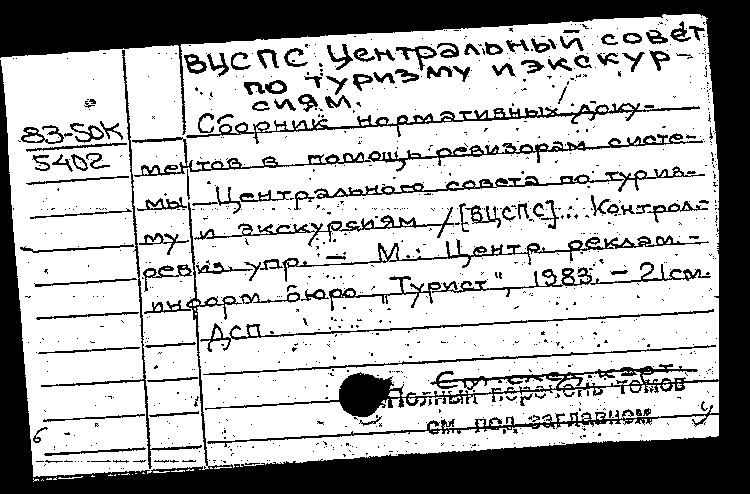 ВЦСПС. Центральный совет
по туризму и экскур-
сиям.
83-50К
5402
Сборник нормативных доку-
ментов в помощь ревизорам систе-
мы Центрального совета по туриз-
му и экскурсиям / [ВЦСПС]... Контрол.-
ревиз. упр. - М.: Центр. реклам.-
информ. бюро "Турист", 1983. - 21см.
ДСП.
См. след. карт.
Полный перечень томов
см. под заглавием
б